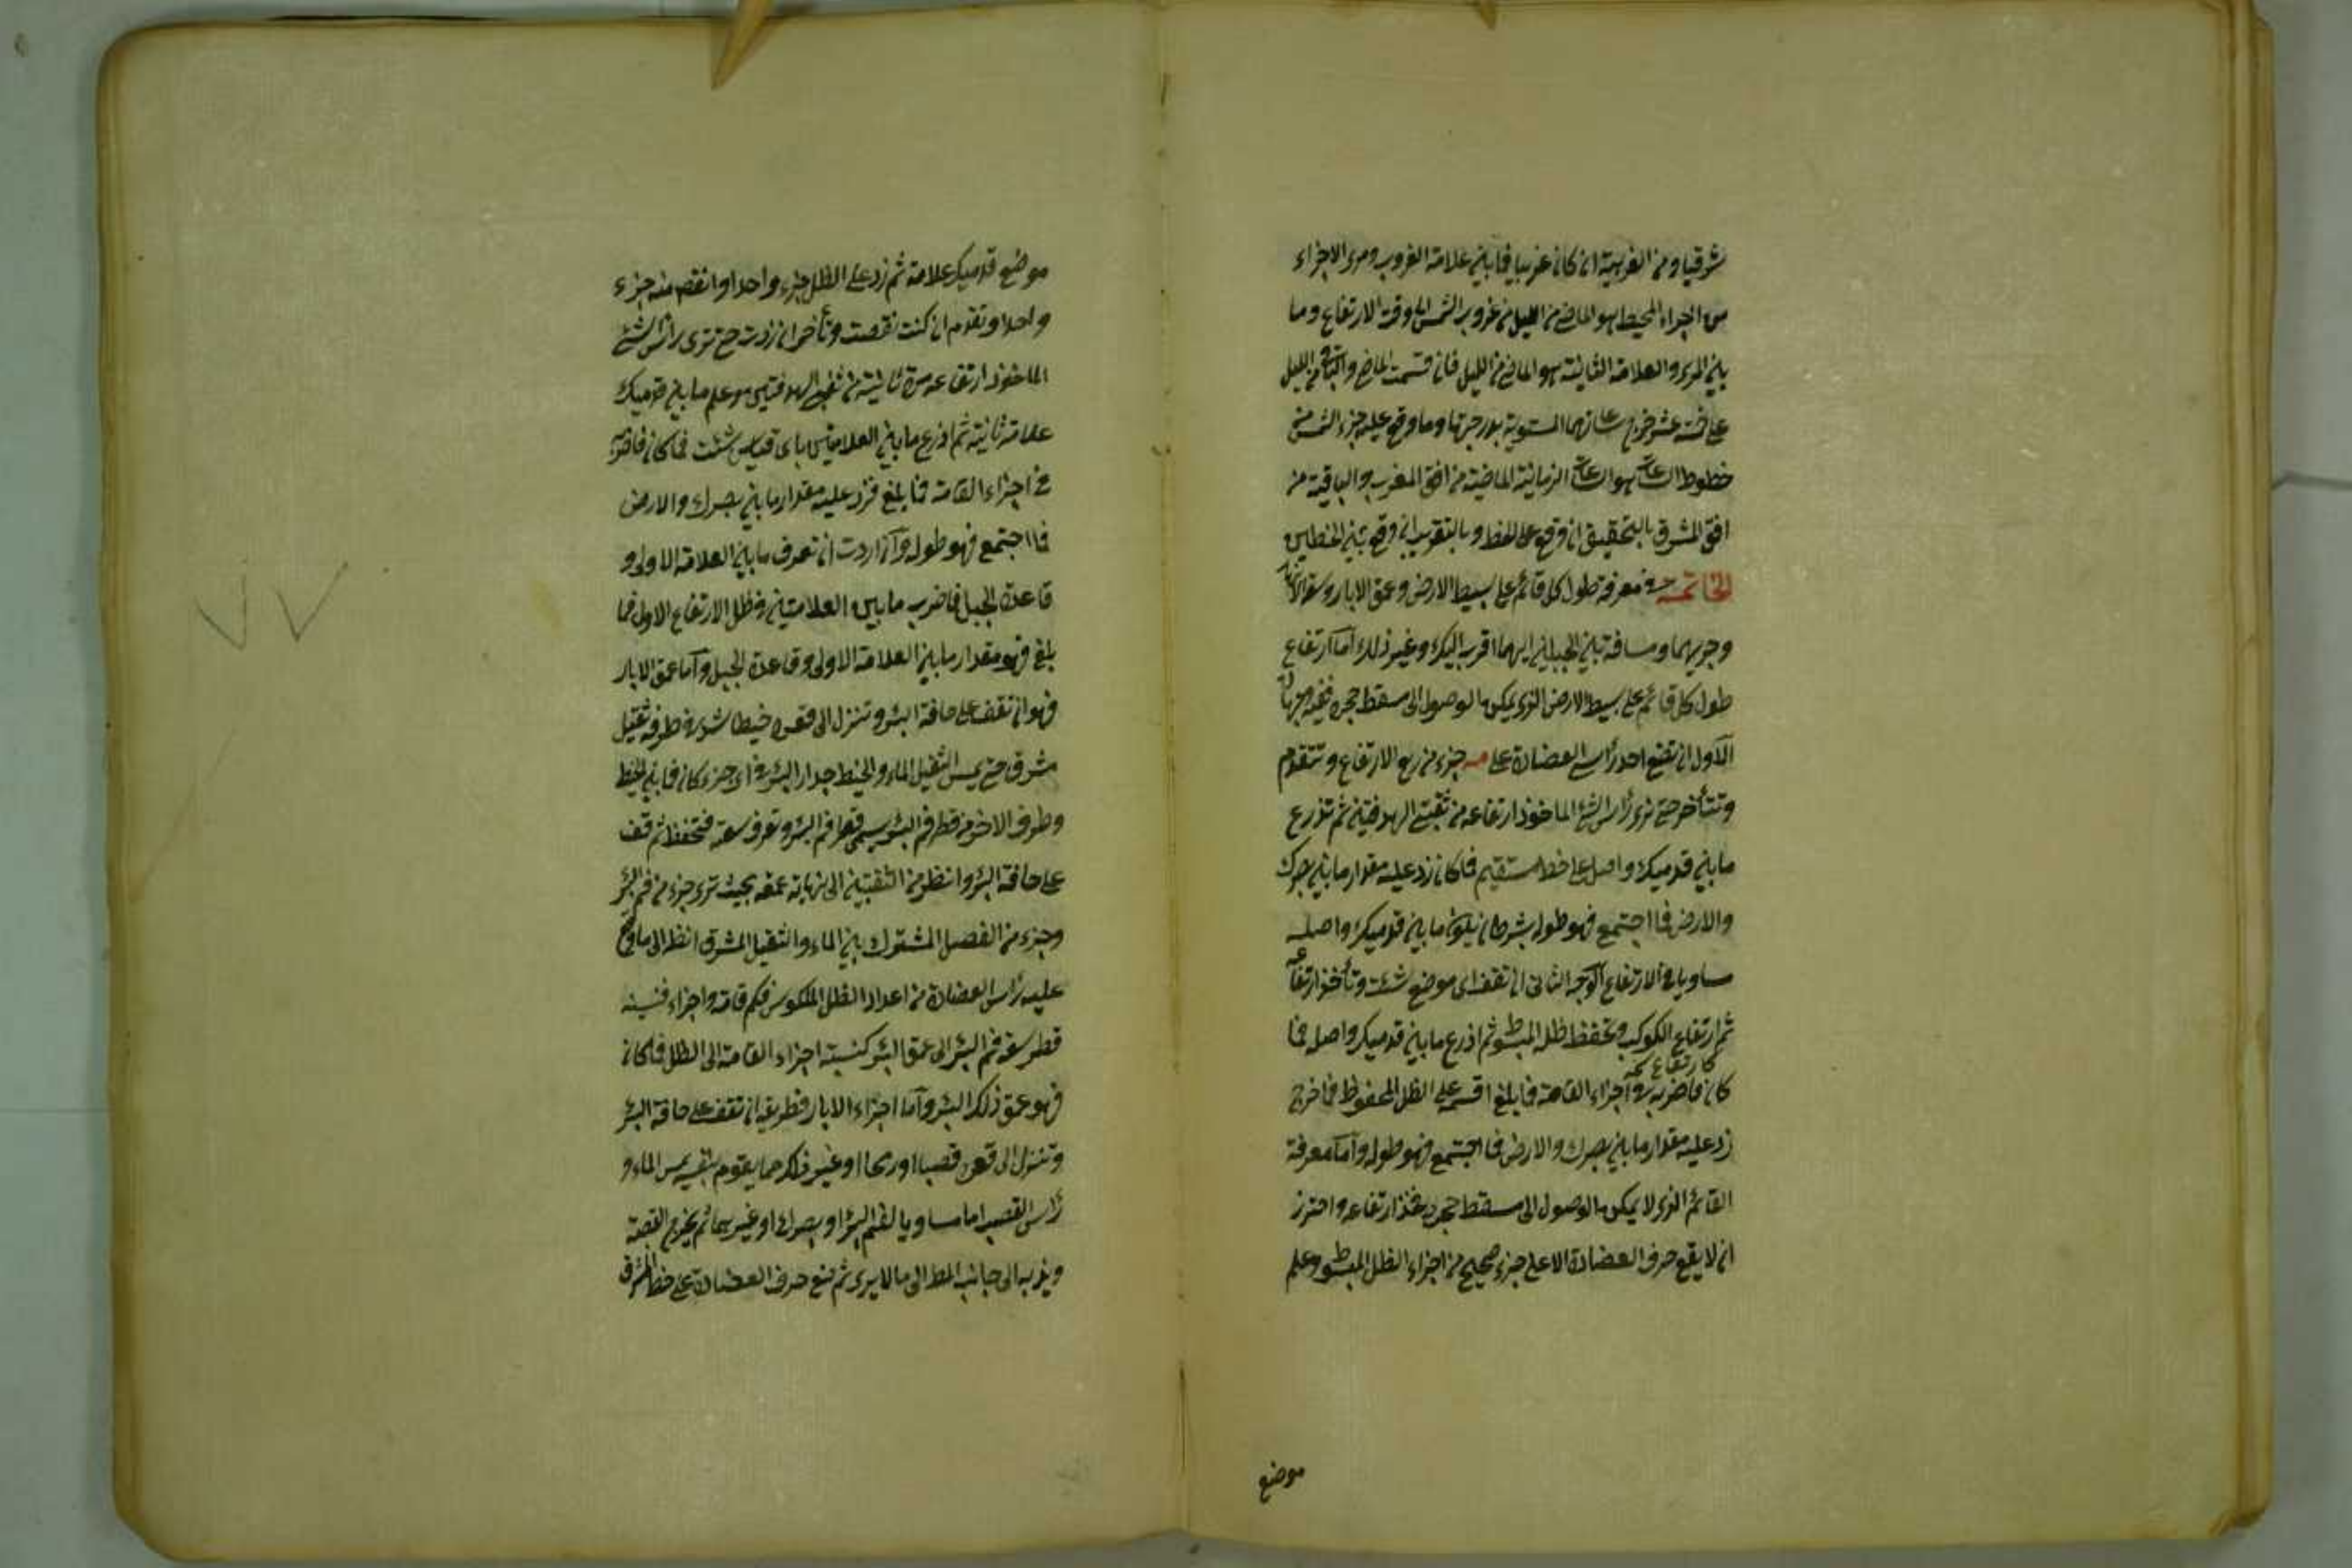 شرقيا ومن الغربية ان كان غربيا فما بين علامة الغروب ومرى الاجزاء
من اجزاء المحيط هو الماضى من الليل من غروب الشمس الى وقت الارتفاع وما
بين المرى والعلامة الثانية هو الماضى من الليل فان قسمت الماضى والباقى من الليل
على خمسة عشر خرج ساعاتهما المستوية بدرجاتها وما وقع عليه جزء الشمس من
خطوط الساعات هو الساعات الزمانية الماضية من افق المغرب والباقية من
افق المشرق بالتحقيق ان وقع على الخط وبالتقريب ان وقع بين الخطين
الخاتمة فى معرفة طول كل قائم على بسيط الارض وعمق الابار وسعة الانهار
وجريهما ومسافة بين الجبلين ايهما اقرب اليك وغير ذلك اما ارتفاع
طول كل قائم على بسيط الارض الذى يمكن الوصول الى مسقط حجره
الاول ان تضع احد رأسى العضادة على مه جزء من ربع الارتفاع وتتقدم
وتتأخر حتى ترى رأس الشئ الماخوذ ارتفاعه من ثقبتى الهدفتين ثم تذرع
ما بين قدميك واصله على خط مستقيم فما كان زد عليه مقدار ما بين بصرك
والارض فما اجتمع فهو طوله بشرط ان يكون ما بين قدميك واصله
مساويا فى الارتفاع الوجه الثانى ان تقف اى موضع شئت وتأخذ ارتفاعه
ثم ارتفاع الكوكب وتحفظ ظله المبسوط ثم اذرع ما بين قدميك واصله فما
كارتفاعه
كان فاضربه فى اجزاء القامة فما بلغ اقسم على الظل المحفوظ فما خرج
زد عليه مقدار ما بين بصرك والارض فما اجتمع فهو طوله واما معرفة
القائم الذى لا يمكن الوصول الى مسقط حجره فخذ ارتفاعه واحترز
ان لا يقع حرف العضادة الا على جزء صحيح من اجزاء الظل المبسوط وعلم
موضع
موضع قدميك علامة ثم زد على الظل جزء واحدا او انقص منه جزء
واحدا وتقدم ان كنت نقصت وتأخر ان زدت حتى ترى رأس الشئ
الماخوذ ارتفاعه مرة ثانية من ثقبى الهدفتين وعلم ما بين قدميك
علامة ثانية ثم اذرع ما بين العلامتين باى قياس شئت فما كان فاضربه
فى اجزاء القامة فما بلغ فزد عليه مقدار ما بين بصرك والارض
فما اجتمع فهو طوله وان اردت ان تعرف ما بين العلامة الاولى و
قاعدة الجبل فاضرب ما بين العلامتين فى ظل الارتفاع الاول فما
بلغ فهو مقدار ما بين العلامة الاولى وقاعدة الجبل واما عمق الابار
فهو ان تقف على حافة البئر وتنزل الى قعره خيطا شد فى طرفه ثقيل
مشرق حتى يمس الثقيل الماء والخيط جدار البئر فى اى جزء كان فما بين الخيط
وطرف الاخر من قطر فم البئر يسمى قطر فم البئر وتعرف سعته فتحفظ ثم قف
على حافة البئر وانظر من الثقبتين الى نهاية عمقه بحيث ترى جزء من فم البئر
وجزء من الفصل المشترك بين الماء والثقيل المشرق انظر الى ما وقع
عليه رأس العضادة من اعداد الظل المنكوس فكم قامة واجزاء فنسبة
قطر سعة فم البئر الى عمق البئر كنسبة اجزاء القامة الى الظل فما كان
فهو عمق ذلك البئر واما اجزاء الابار فطريقه ان تقف على حافة البئر
وتنزل الى قعره قصبا او رمحا او غير ذلك مما يقوم بنفسه يمس الماء و
رأس القصب اما مساويا لفم البئر او بصرك او غيرهما ثم يخرج القصبة
ويذهب الى جانب الى ما لا يرى ثم ضع حرف العضادة على خط المشرق